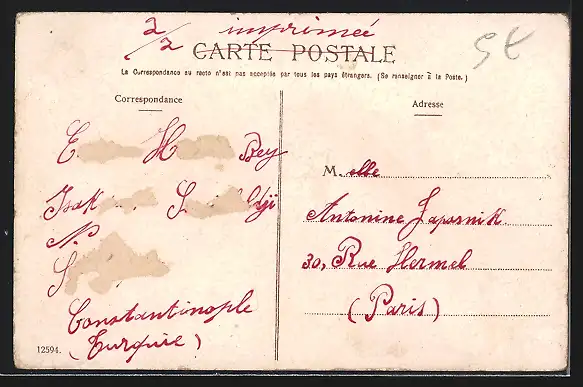 2/2 imprimeé
CARTE POSTALE
La Correspondance au recto n'est pas acceptée par tous les pays étrangers. (Se renseigner à la Poste.)
Correspondance
Adresse
E H Bey
Isak S dji
No
S
Constantinople
(Turquie)
M.elle
Antonine Japosnik
30, Rue Hermel
(Paris)
12594.